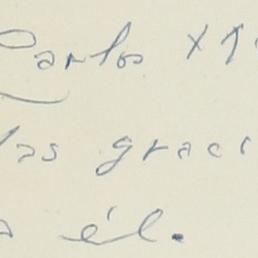 Carlos
las graci
él.